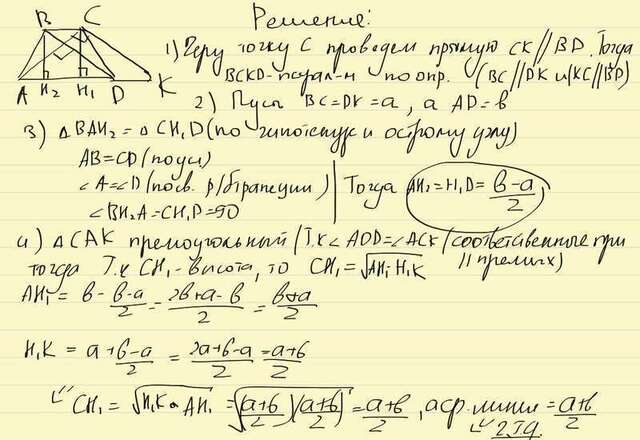 Решение:
B C
A H₂ H₁ D K
1) Через точку C проведем прямую CK//BD. Тогда
BCKD-парал-м по опр. (BC//DK и KC//BD)
2) Пусть BC=DK=a, а AD=b
3) △BAH₂=△CH₁D (по гипотенузе и острому углу)
AB=CD (по усл)
∠A=∠D (по св. р/б трапеции)
∠BH₂A=CH₁D=90
Тогда AH₂=H₁D= b-a/2
4) △CAK прямоугольный (т.к ∠AOD=∠ACK (соответственные при // прямых)
тогда Т.к CH₁-высота, то CH₁=√AH₁·H₁K
AH₁ = b - b-a/2 = 2b+a-b/2 = b+a/2
H₁K = a + b-a/2 = 2a+b-a/2 = a+b/2
CH₁ = √H₁K · AH₁ = √(a+b/2)(a+b/2) = a+b/2, а ср. линия = a+b/2
ч.т.д.